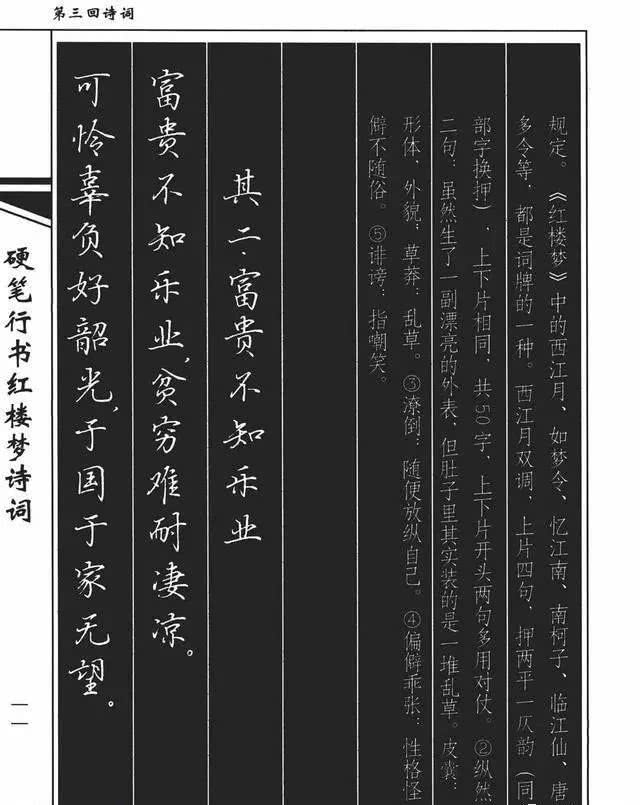 第三回诗词
规定。《红楼梦》中的西江月、如梦令、忆江南、南柯子、临江仙、唐
多令等，都是词牌的一种。西江月双调，上片四句，押两平一仄韵（同
部字换押），上下片相同，共50字，上下片开头两句多用对仗。②纵然
二句：虽然生了一副漂亮的外表，但肚子里其实装的是一堆乱草。皮囊：
形体、外貌；草莽：乱草。③潦倒：随便放纵自己。④偏僻乖张：性格怪
僻不随俗。⑤诽谤：指嘲笑。
其二·富贵不知乐业
富贵不知乐业，贫穷难耐凄凉。
可怜辜负好韶光，于国于家无望。
硬笔行书红楼梦诗词
一一